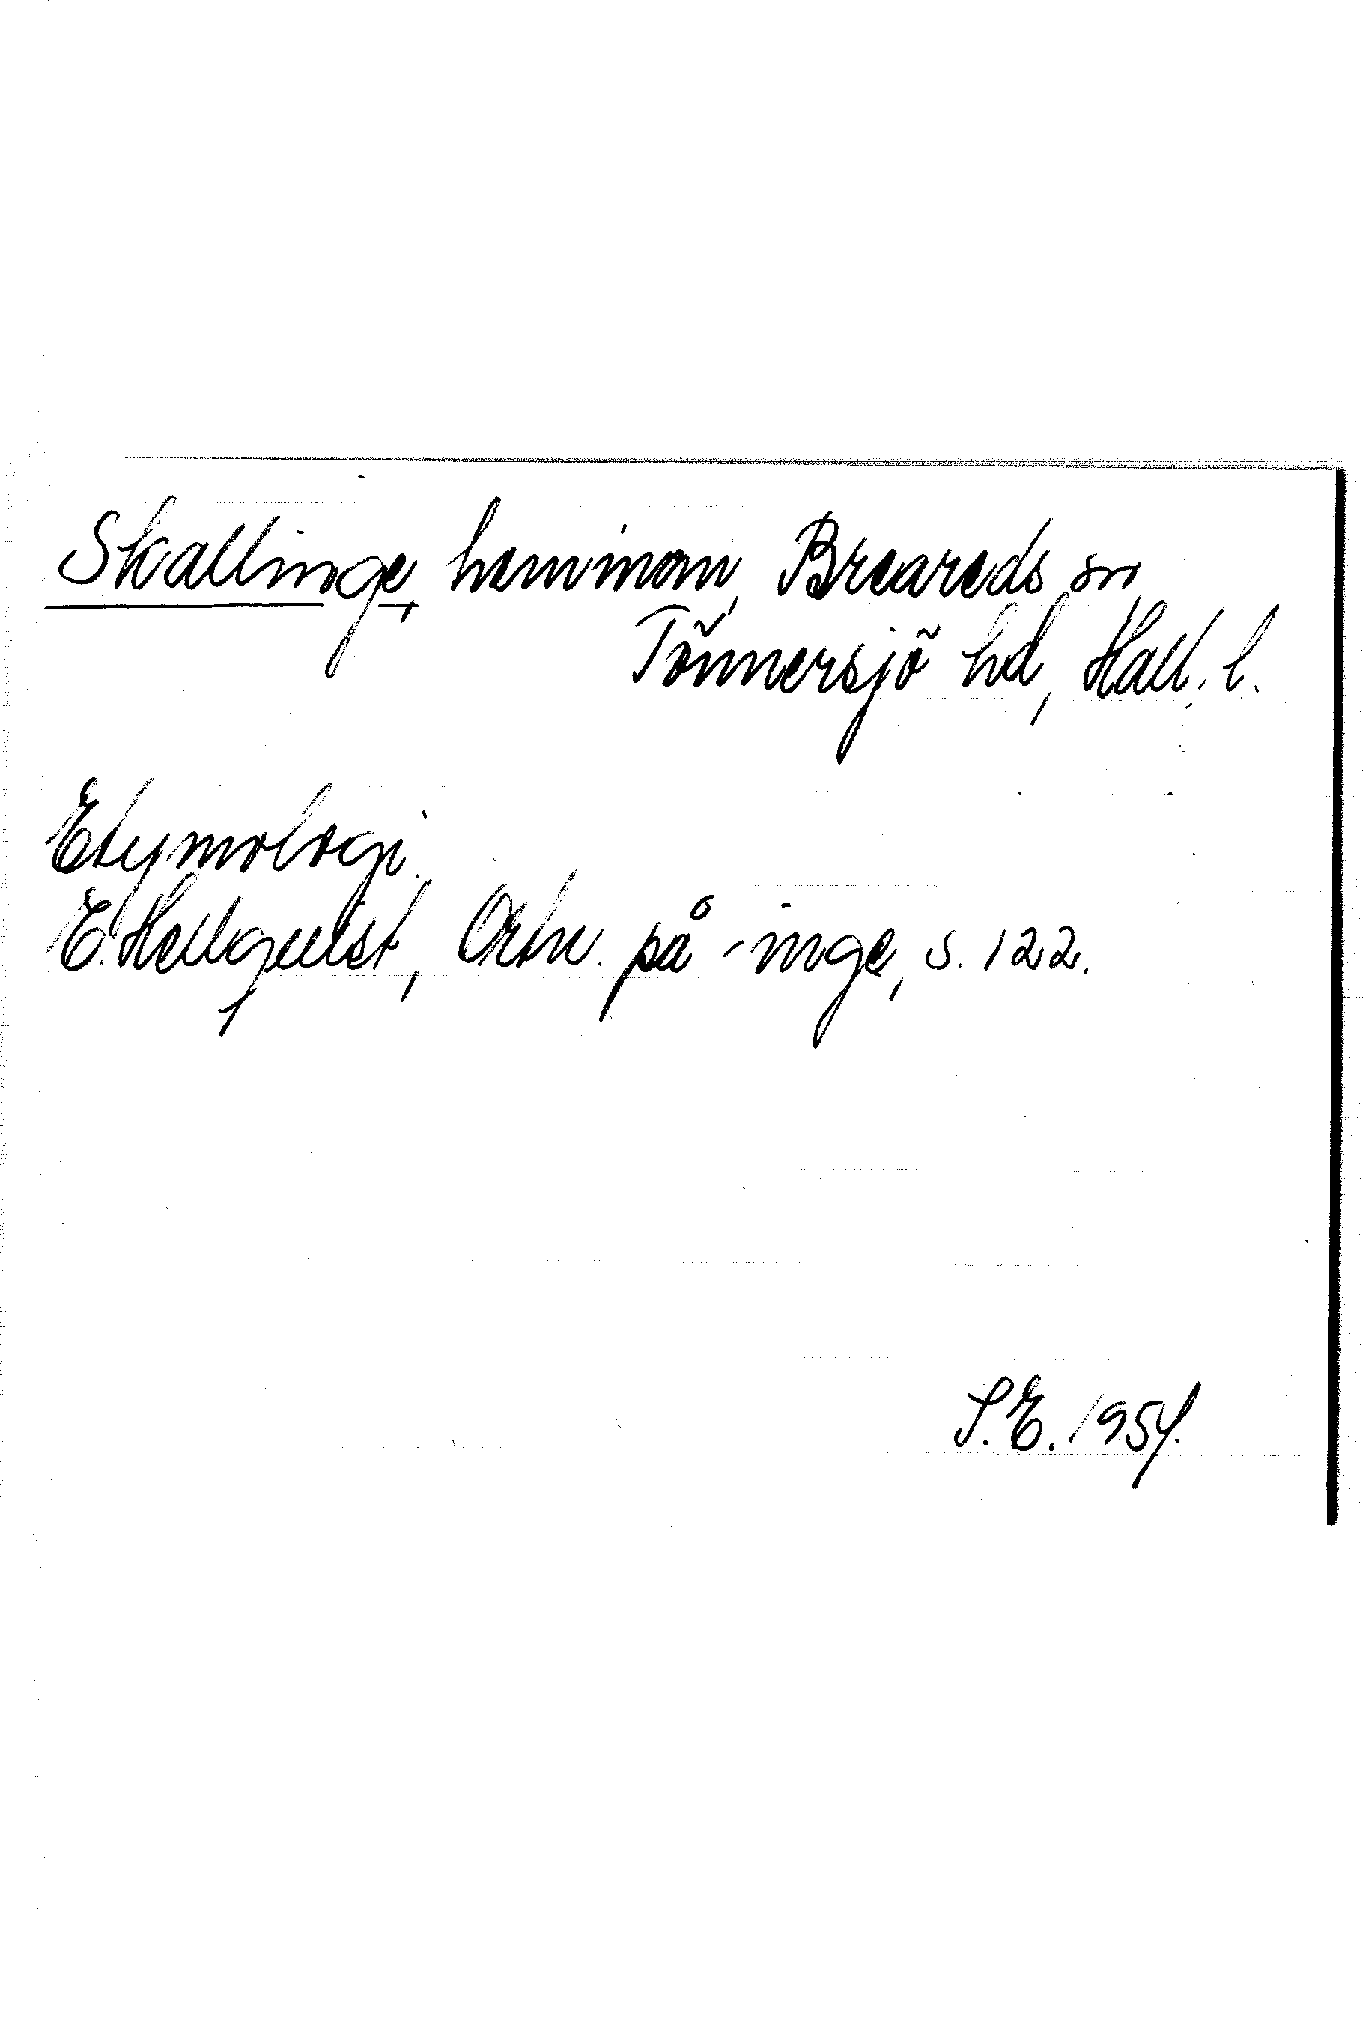 Skallinge, hemman, Breareds sn,
Tönnersjö hd, Hall. l.
Etymologi.
E. Hellquist, Ortn. på -inge, s. 122.
S.E. 1954.